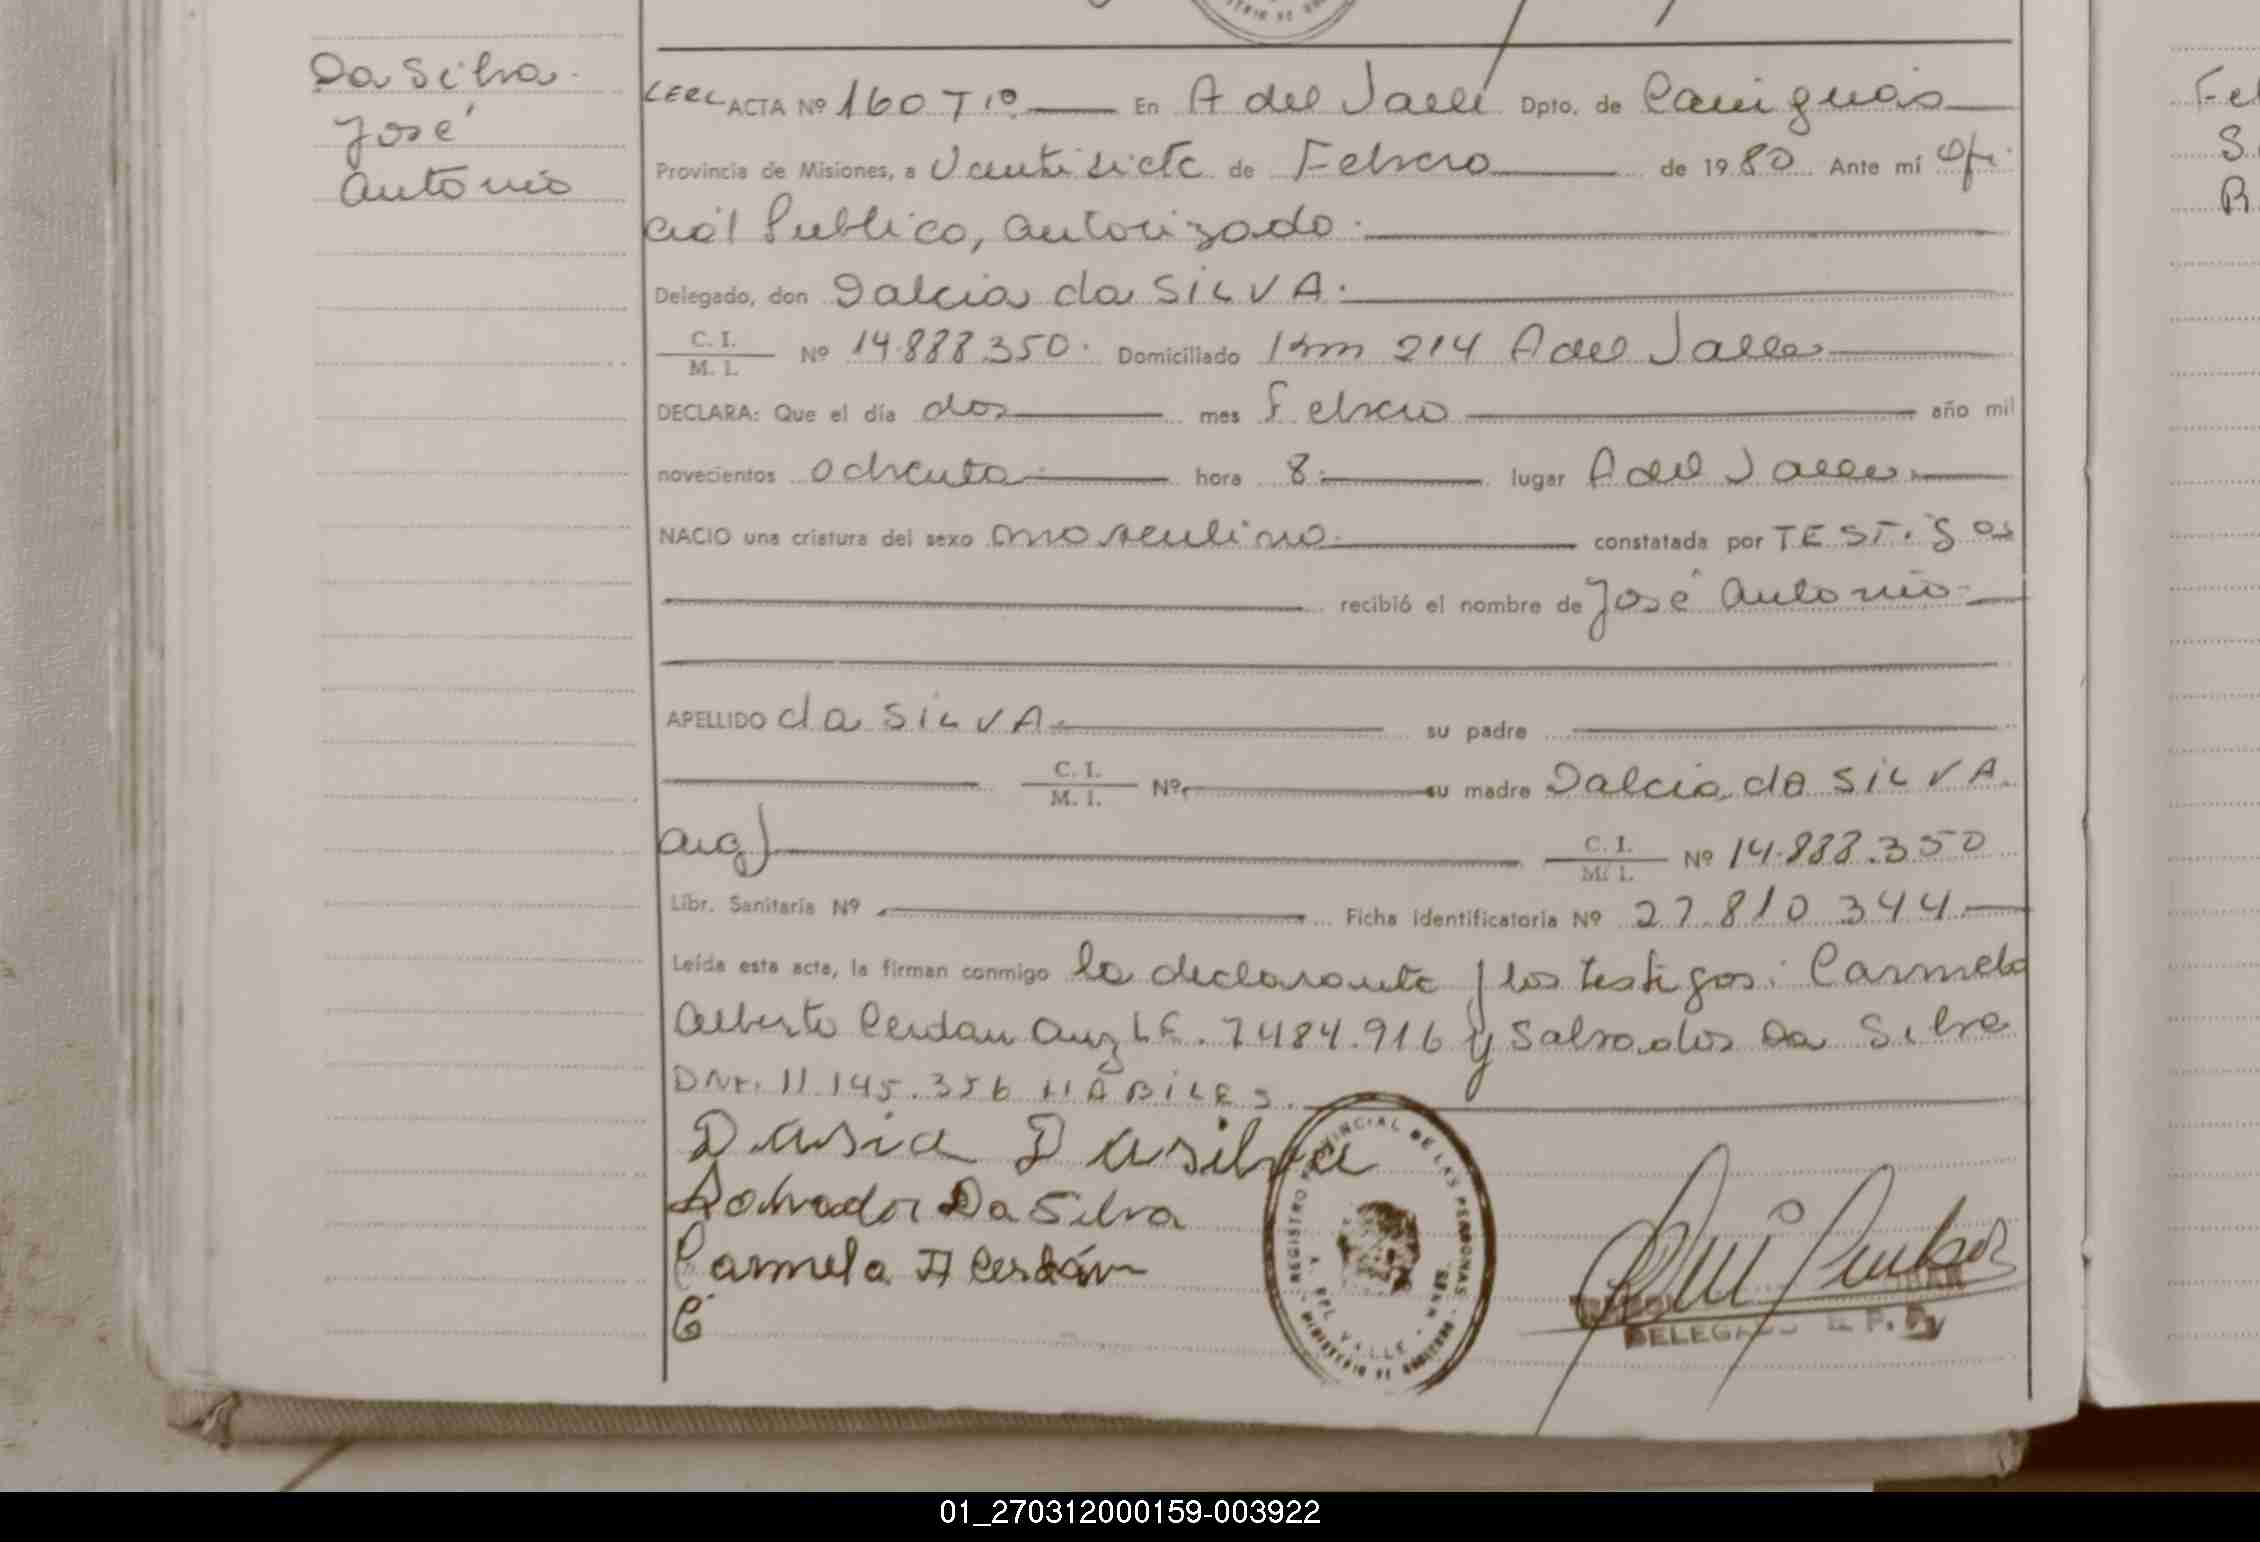 Da Silva
José
Antonio
ACTA Nº 160 Tº En A del Valle Dpto. de Cainguás
Provincia de Misiones, a Veintisiete de Febrero de 1980 Ante mí Ofi
cial Publico, autorizado.
Delegado, don Dalcia da SILVA.
C. I.
M. I. Nº 14.888.350. Domiciliado Km 214 A del Valle
DECLARA: Que el día dos mes Febrero año mil
novecientos ochenta hora 8 lugar A del Valle
NACIO una criatura del sexo masculino constatada por TESTigos
recibió el nombre de José Antonio
APELLIDO da SILVA su padre
C. I.
M. I. Nº su madre Dalcia da SILVA
arg)
C. I.
M. I. Nº 14.888.350
Libr. Sanitaria Nº Ficha Identificatoria Nº 27.810 344
Leída esta acta, la firman conmigo la declarante y los testigos: Carmelo
Alberto Cerdan LE. 7484.916 y Salvador Da Silva
DNI. 11.145.356 HABILES.
Dasia Dasilva
Salvador Da Silva
Carmelo A Cerdán
REGISTRO PROVINCIAL DE LAS PERSONAS
A. DEL VALLE
MINISTERIO DE GOBIERNO
DELEGADO R. P. P.
Fe
S
R
01_270312000159-003922